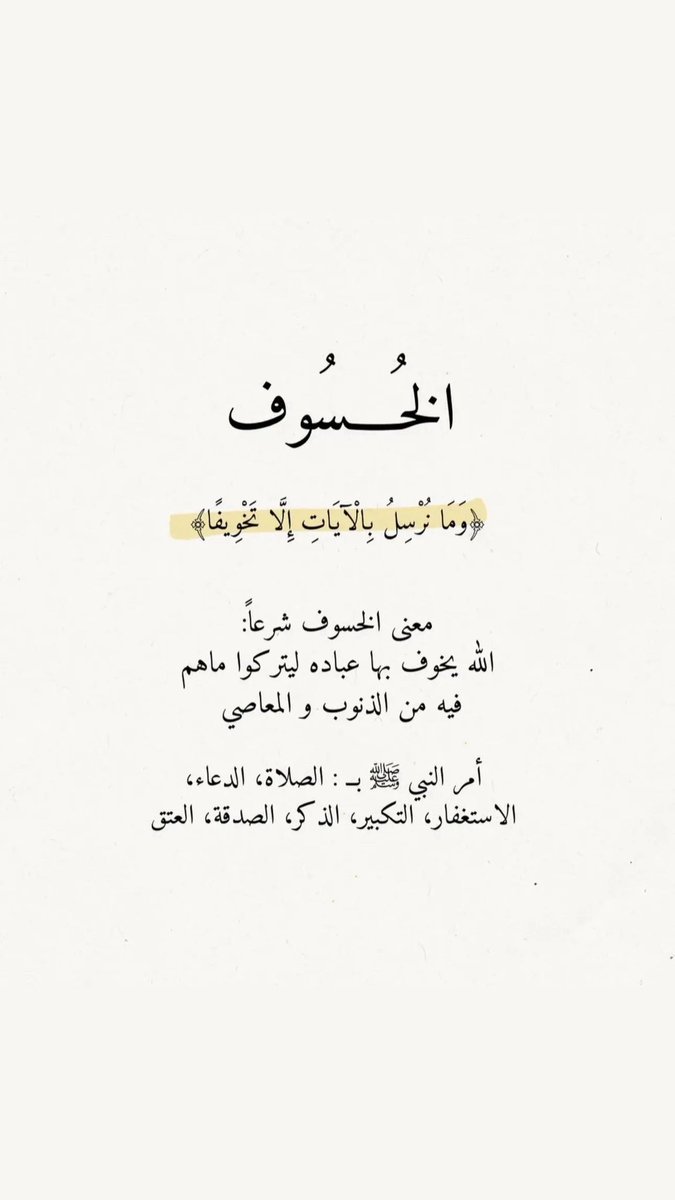 الخُـسُوف
﴿وَمَا نُرْسِلُ بِالْآيَاتِ إِلَّا تَخْوِيفًا﴾
معنى الخسوف شرعاً:
الله يخوف بها عباده ليتركوا ماهم
فيه من الذنوب و المعاصي
أمر النبي ﷺ بـ : الصلاة، الدعاء،
الاستغفار، التكبير، الذكر، الصدقة، العتق